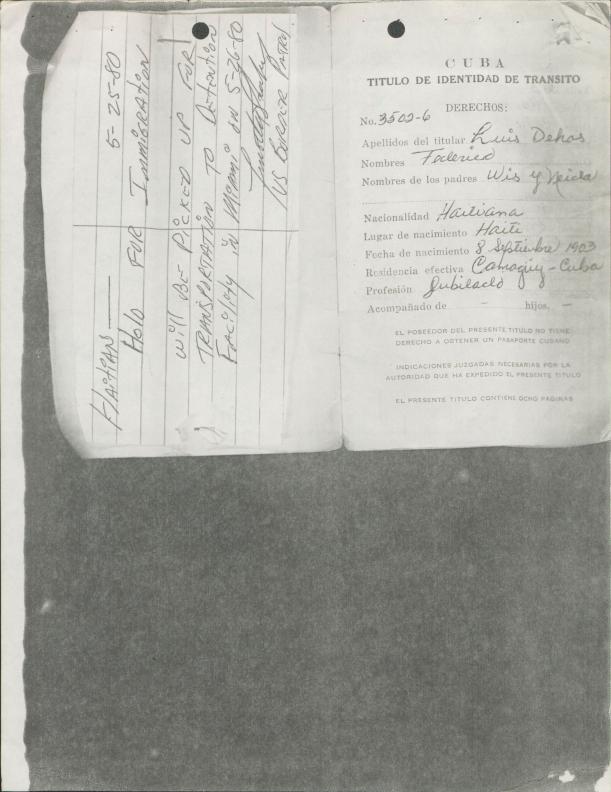 5-25-80
HAITIANS —
HOLD FOR IMMIGRATION
WILL BE PICKED UP FOR
TRANSPORTATION TO DETENTION
FACILITY IN MIAMI ON 5-26-80
US BORDER PATROL
CUBA
TITULO DE IDENTIDAD DE TRANSITO
DERECHOS:
No. 3502-6
Apellidos del titular Luis Dehas
Nombres Federico
Nombres de los padres Wis y Neida
Nacionalidad Haitiana
Lugar de nacimiento Haiti
Fecha de nacimiento 8 Septiembre 1903
Residencia efectiva Camagüey - Cuba
Profesión Jubilado
Acompañado de – hijos. –
EL POSEEDOR DEL PRESENTE TITULO NO TIENE
DERECHO A OBTENER UN PASAPORTE CUBANO
INDICACIONES JUZGADAS NECESARIAS POR LA
AUTORIDAD QUE HA EXPEDIDO EL PRESENTE TITULO
EL PRESENTE TITULO CONTIENE OCHO PAGINAS